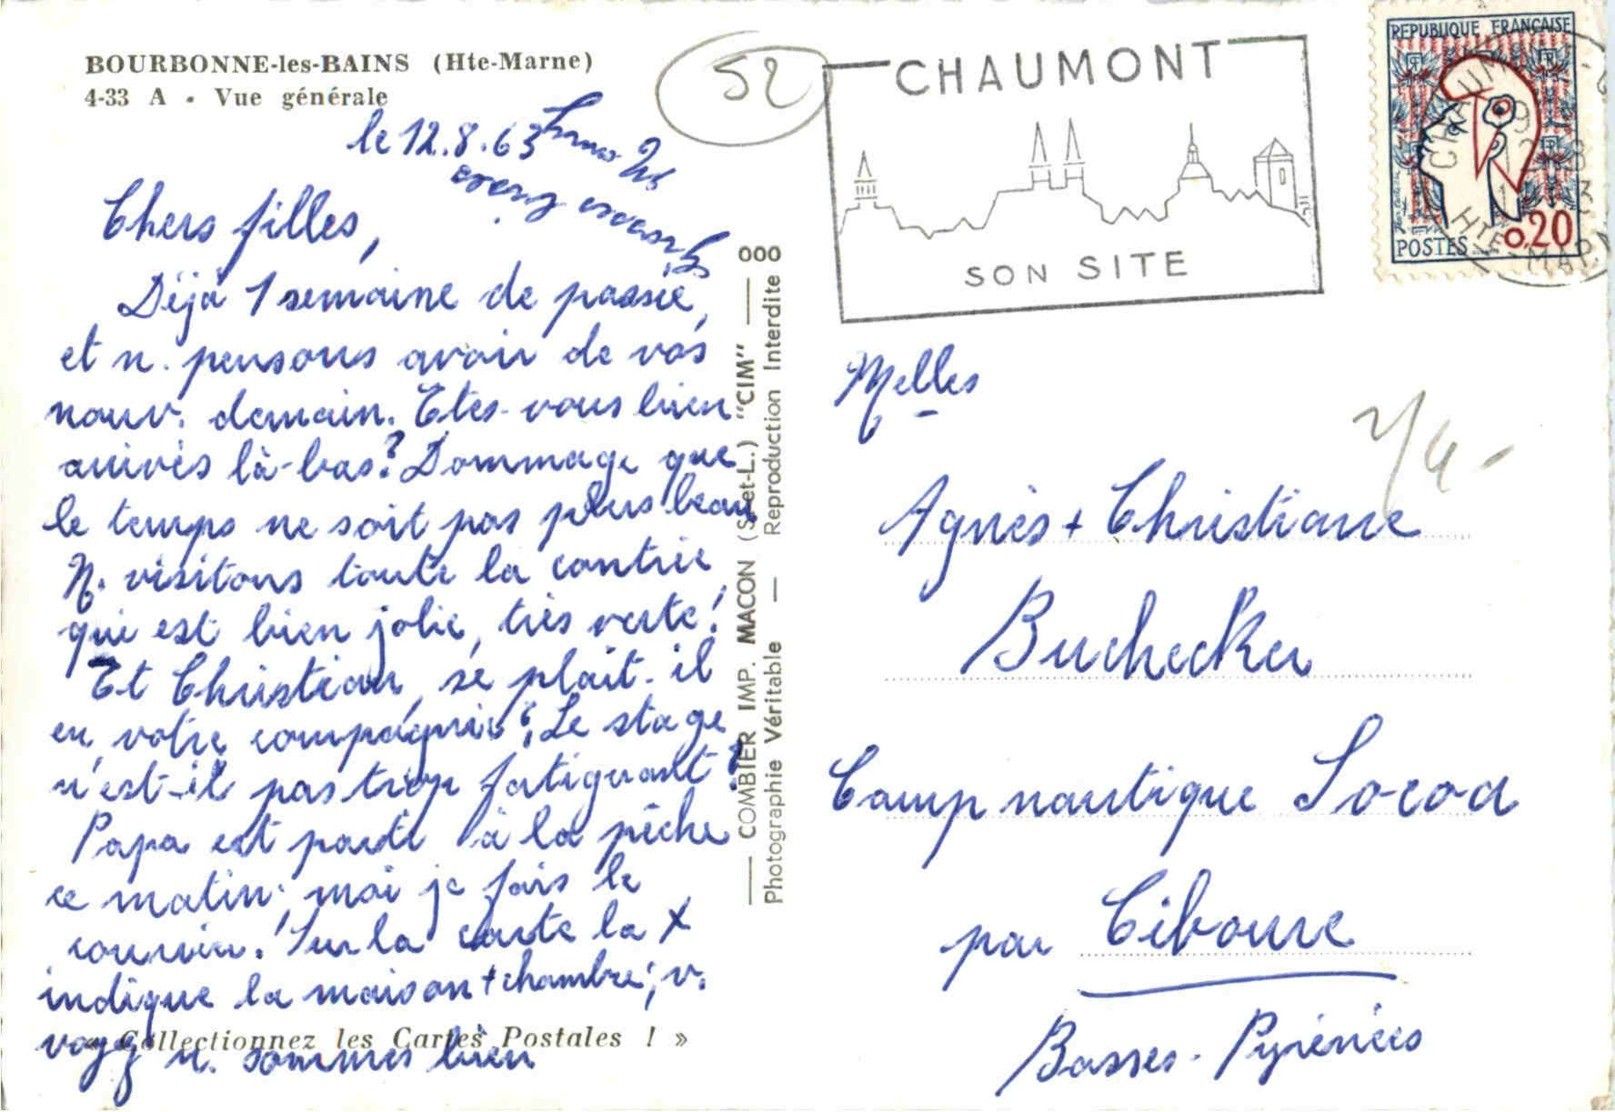 BOURBONNE-les-BAINS (Hte-Marne)
4-33 A • Vue générale
le 12.8.63
Chers filles,
Déjà 1 semaine de passée,
et n. pensons avoir de vos
nouv. demain. Etes-vous bien
arrivés là-bas? Dommage que
le temps ne soit pas plus beau
N. visitons toute la contrée
qui est bien jolie, très verte!
Et Christian, se plait-il
en votre compagnie? Le stage
n'est-il pas trop fatiguant?
Papa est parti à la pêche
ce matin; moi je fais le
courrier! Sur la carte la X
indique la maison + chambre; v.
voyez n. sommes bien
Grosses bises
« Collectionnez les Cartes Postales ! »
COMBIER IMP. MACON (S.-et-L.) "CIM"
Photographie Véritable — Reproduction Interdite
000
52
CHAUMONT
SON SITE
REPUBLIQUE FRANÇAISE
POSTES 0,20
CHAUMONT
HTE-MARNE
Melles
Agnès + Christiane
Buchecker
Camp nautique Socoa
par Ciboure
Basses-Pyrénées